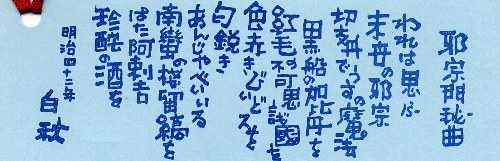 耶宗門秘曲
われは思ふ
末世の邪宗
切支丹でうすの魔法
黒船の加比丹を
紅毛の不可思議國を
色赤きびいどろを
匂鋭き
あんじやべいいる
南蛮の桟留縞を
はた阿剌吉
珍酡の酒を
明治四十二年
白秋